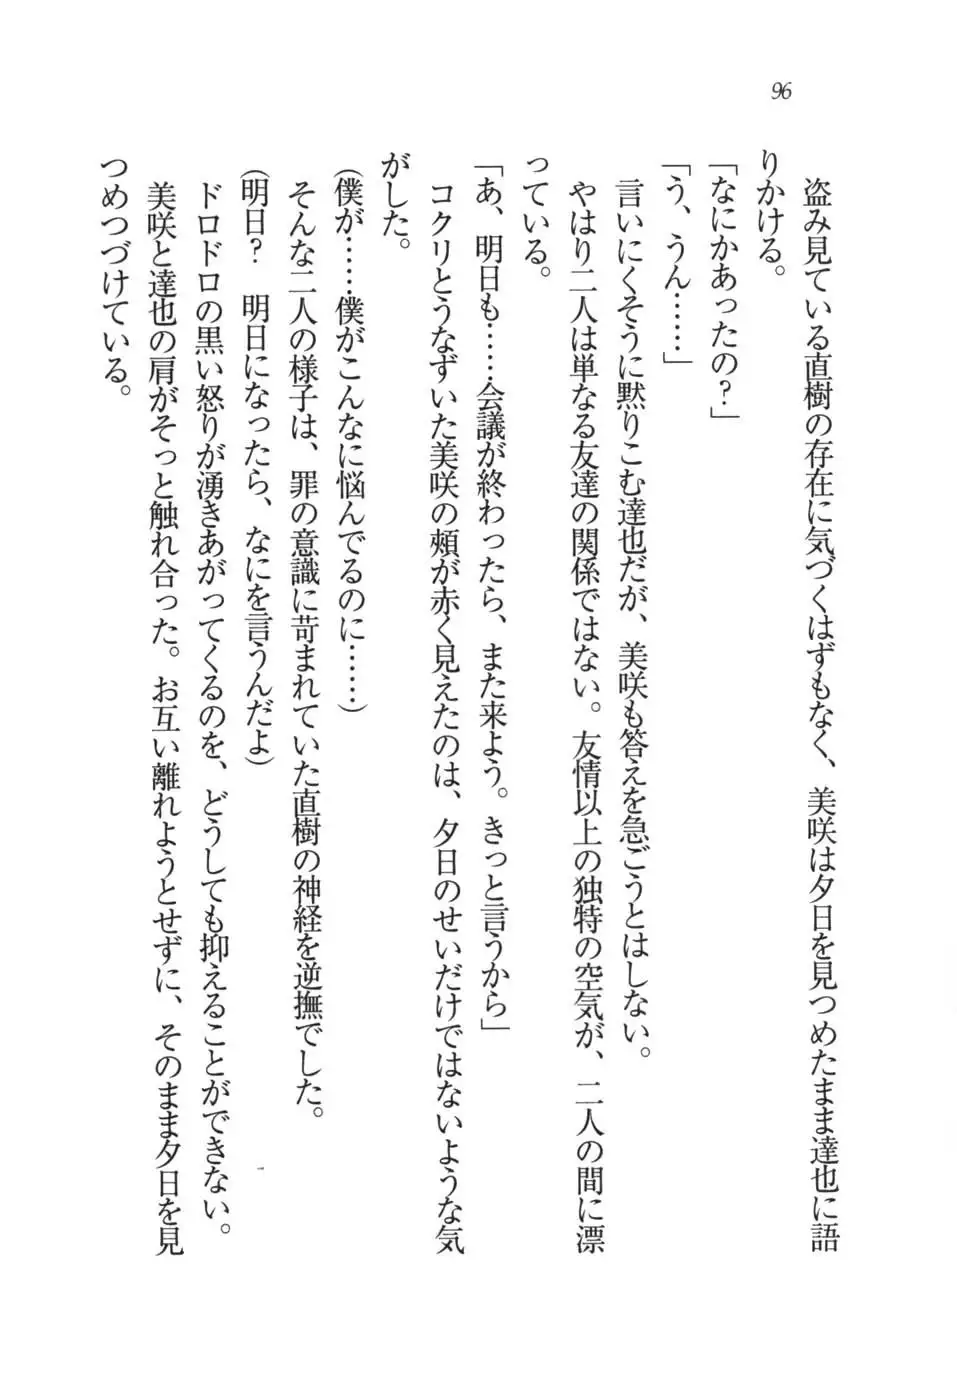 96
盗み見ている直樹の存在に気づくはずもなく、美咲は夕日を見つめたまま達也に語
りかける。
「なにかあったの？」
「う、うん……」
言いにくそうに黙りこむ達也だが、美咲も答えを急ごうとはしない。
やはり二人は単なる友達の関係ではない。友情以上の独特の空気が、二人の間に漂
っている。
「あ、明日も……会議が終わったら、また来よう。きっと言うから」
コクリとうなずいた美咲の頰が赤く見えたのは、夕日のせいだけではないような気
がした。
（僕が……僕がこんなに悩んでるのに……）
そんな二人の様子は、罪の意識に苛まれていた直樹の神経を逆撫でした。
（明日？　明日になったら、なにを言うんだよ）
ドロドロの黒い怒りが湧きあがってくるのを、どうしても抑えることができない。
美咲と達也の肩がそっと触れ合った。お互い離れようとせずに、そのまま夕日を見
つめつづけている。